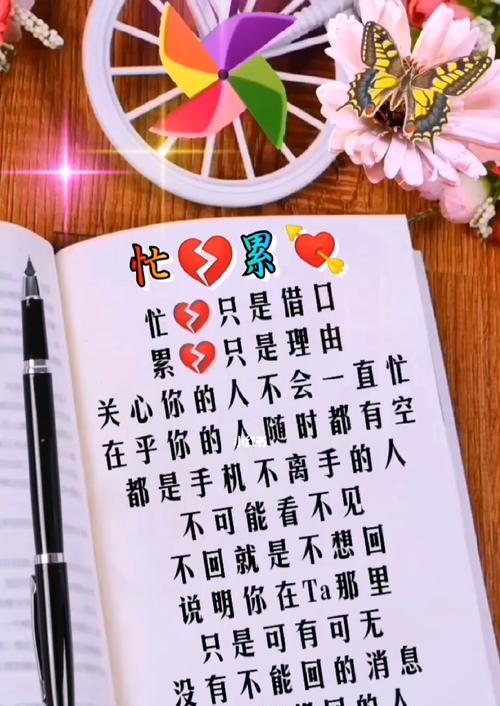 忙💔累💘
忙💔只是借口
累💔只是理由
关心你的人不会一直忙
在乎你的人随时都有空
都是手机不离手的人
不可能看不见
不回就是不想回
说明你在Ta那里
只是可有可无
没有不能回的消息
回的人